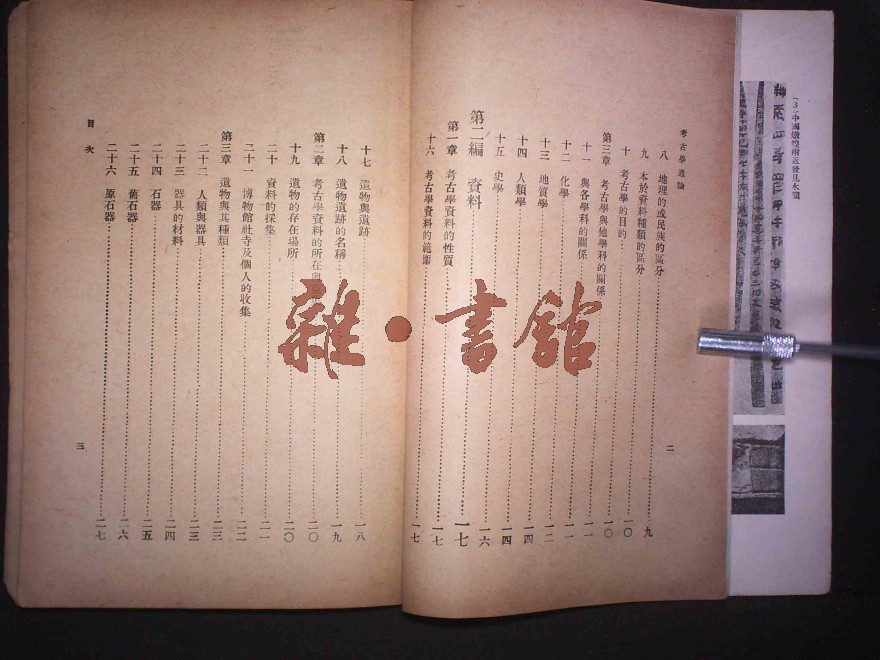 (3)中國燉煌附近發見木簡
考古學通論
八 地理的或民族的區分 九
九 本於資料種類的區分 一〇
十 考古學的目的 一〇
第三章 考古學與他學科的關係 一〇
十一 與各學科的關係 一一
十二 化學 一一
十三 地質學 一二
十四 人類學 一四
十五 史學 一四
第二編 資料 一七
第一章 考古學資料的性質 一七
十六 考古學資料的範圍 一七
二
十七 遺物與遺跡 一八
十八 遺物遺跡的名稱 一九
第二章 考古學資料的所在與 二〇
十九 遺物的存在場所 二〇
二十 資料的採集 二一
二十一 博物館社寺及個人的收集 二二
第三章 遺物與其種類 二三
二十二 人類與器具 二三
二十三 器具的材料 二四
二十四 石器 二五
二十五 舊石器 二六
二十六 原石器 二七
目次
三
雜·書館